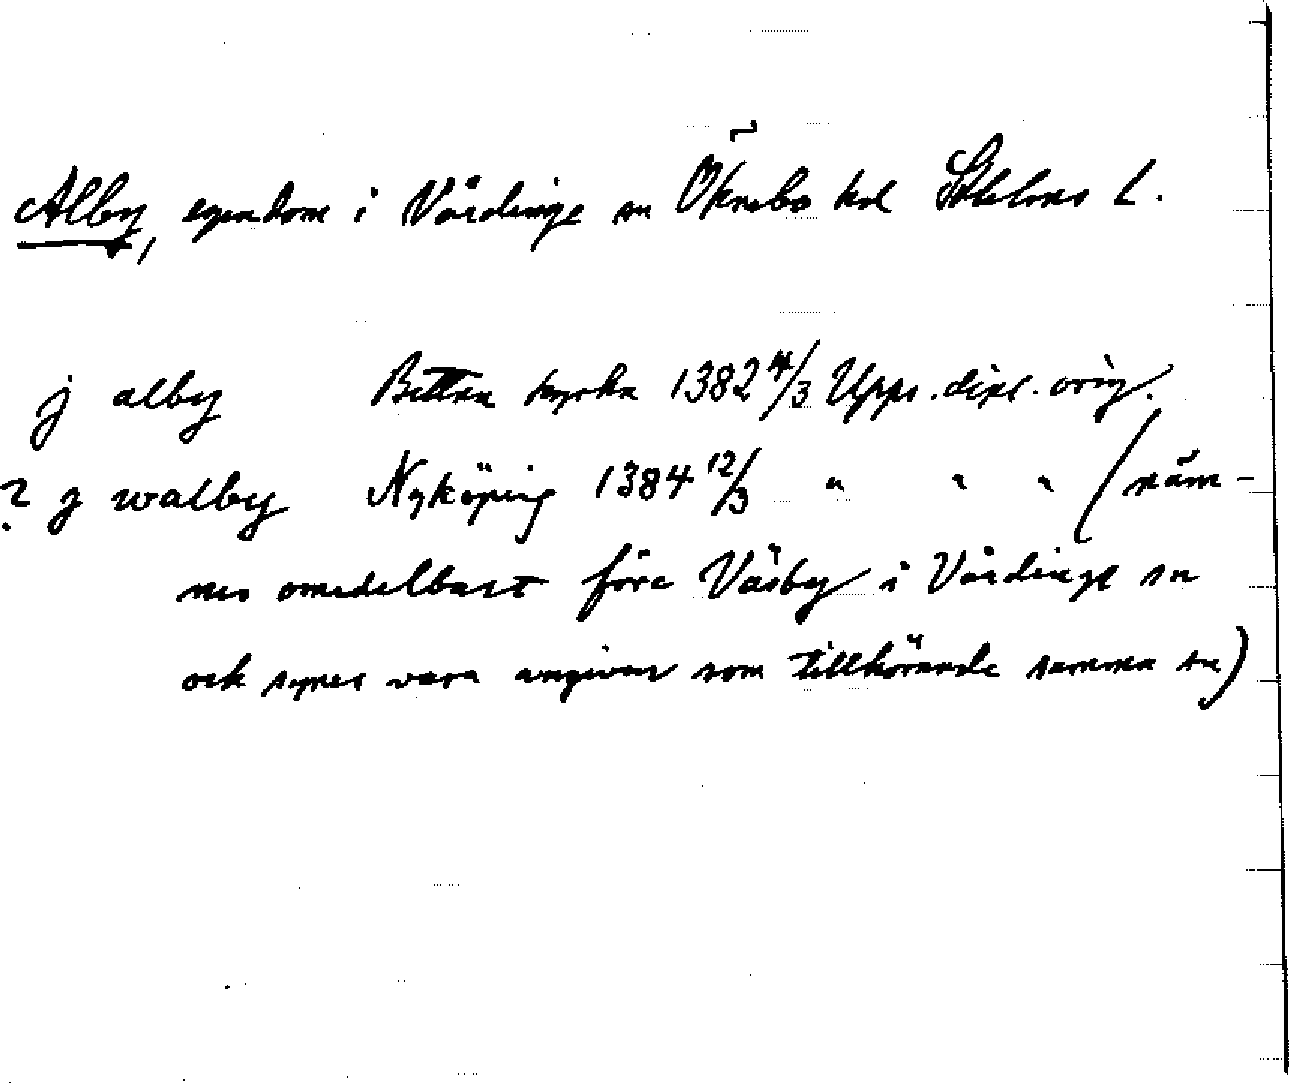 Alby, egendom i Vårdinge sn Öknebo hd Sthlms l.
j alby Bettna kyrka 1382 4/3 Upps. dipl. orig.
? j walby Nyköping 1384 12/3 " " " (näm-
nes omedelbart före Väsby i Vårdinge sn
och synes vara angiven som tillhörande samma sn)